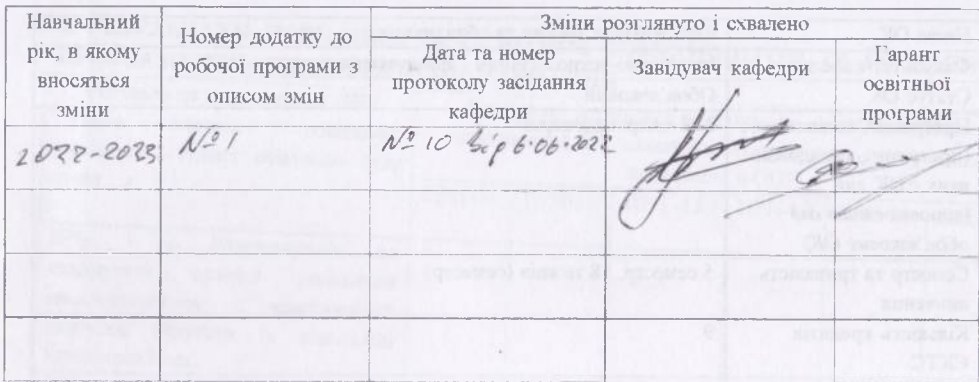 Навчальний
рік, в якому
вносяться
зміни
Номер додатку до
робочої програми з
описом змін
Зміни розглянуто і схвалено
Дата та номер
протоколу засідання
кафедри
Завідувач кафедри
Гарант
освітньої
програми
2022-2023 № 1 № 10 від 6.06.2022